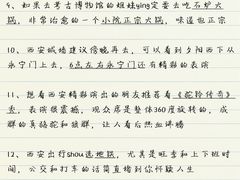 9、如果去考古博物馆的姐妹ying定要去吃石炉火
锅，非常治愈的一个小院正宗火锅，味道也正宗
10、西安城墙建议傍晚再去，可以看到夕阳西下从
永宁门上去，6点左右永宁门还有精彩的表演
11、想看西安精彩演出的朋友推荐看《驼铃传奇》
秀，表演很震撼，观众席是整体360度旋转的，成
群的真骆驼和狼群，让人看后热血沸腾
12、西安出行shou选地铁，尤其是旺季和上下班时
间，公交和打车的话简直堵到你怀疑人生